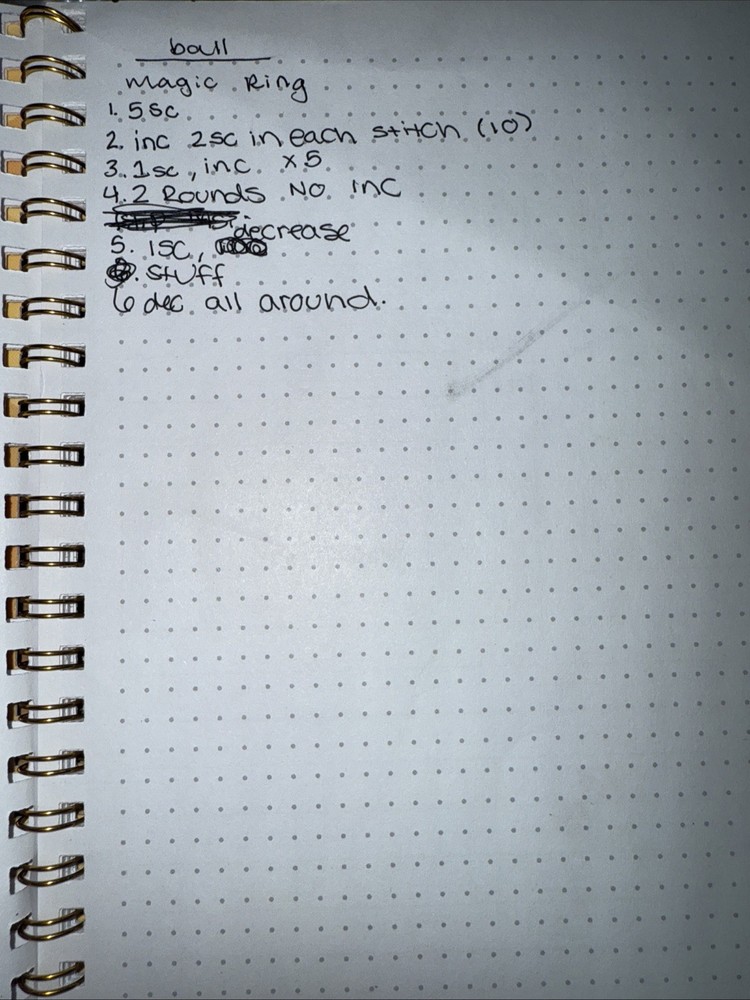 ball
Magic Ring
1. 5sc
2. inc 2sc in each stitch (10)
3. 1sc, inc x5
4. 2 Rounds No inc
5. 1sc, decrease
. Stuff
6 dec all around.